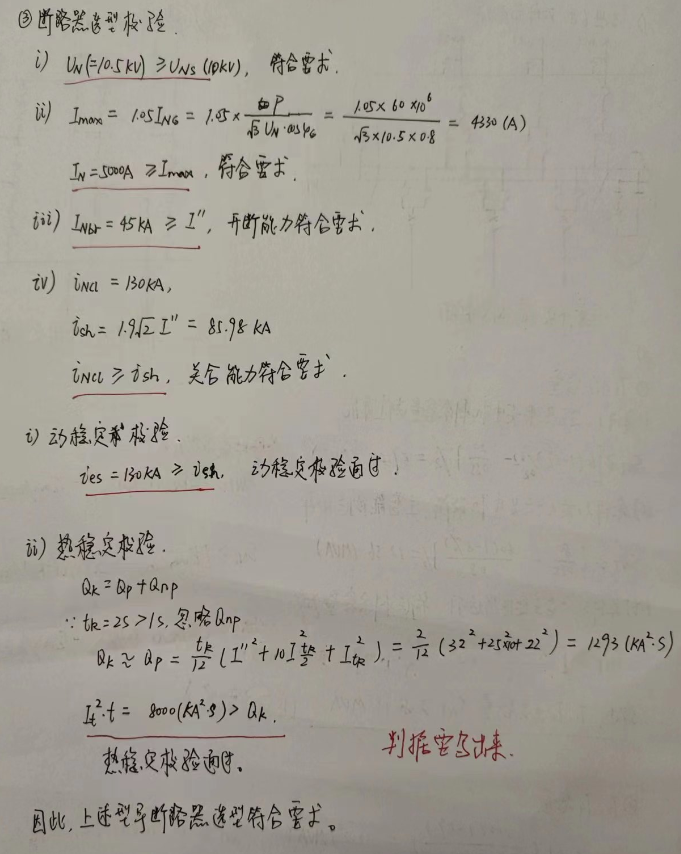 ③断路器选型校验.
i) UN(=10.5KV) ≥ UNs (10KV), 符合要求.
ii) Imax = 1.05 ING = 1.05 × P / (√3 UN·cosφG) = 1.05×60×10⁶ / (√3×10.5×0.8) = 4330 (A)
IN = 5000A ≥ Imax, 符合要求.
iii) INbr = 45KA ≥ I'', 开断能力符合要求.
iv) iNcl = 130KA,
ish = 1.9√2 I'' = 85.98 KA
iNcl ≥ ish, 关合能力符合要求.
i) 动稳定校验.
ies = 130KA ≥ ish. 动稳定校验通过.
ii) 热稳定校验.
Qk = Qp + Qnp
∵ tk = 2S > 1S, 忽略Qnp
Qk ≈ Qp = tk/12 (I''² + 10I²tk/2 + I²tk) = 2/12 (32² + 25²×10 + 22²) = 1293 (KA²·S)
It²·t = 8000(KA²·S) > Qk.
热稳定校验通过。
判据要写出来.
因此, 上述型号断路器选型符合要求。